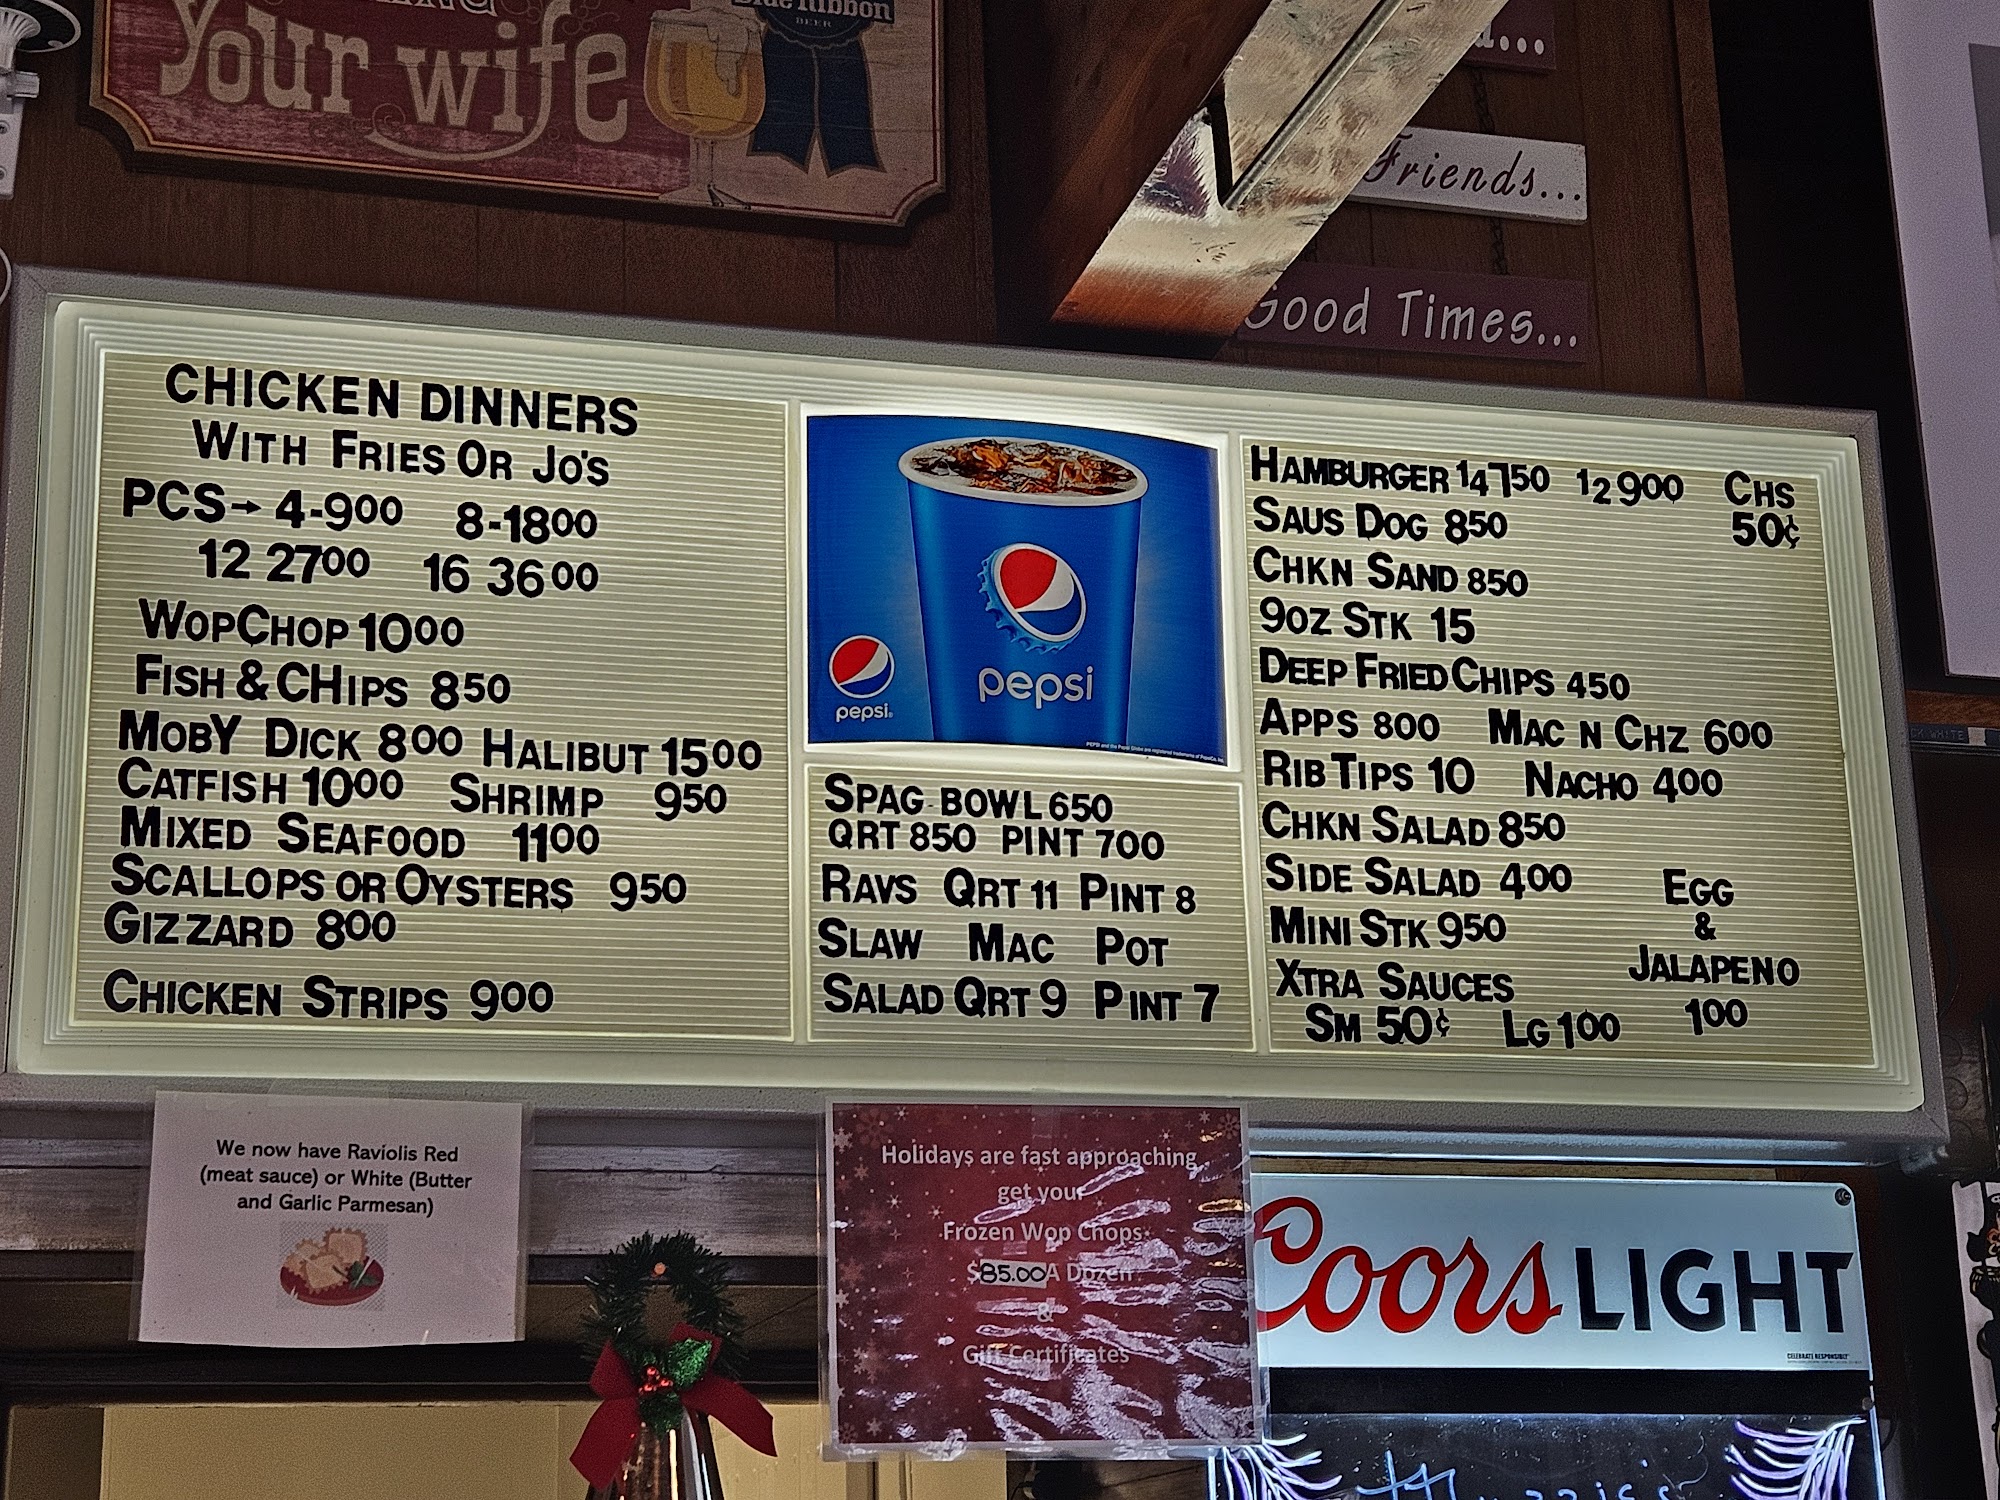 Your wife
Blue Ribbon
BEER
Friends...
Good Times...
CHICKEN DINNERS
WITH FRIES OR JO'S
PCS→ 4-900 8-1800
12 2700 16 3600
WOPCHOP 1000
FISH & CHIPS 850
MOBY DICK 800 HALIBUT 1500
CATFISH 1000 SHRIMP 950
MIXED SEAFOOD 1100
SCALLOPS OR OYSTERS 950
GIZZARD 800
CHICKEN STRIPS 900
pepsi
pepsi
SPAG-BOWL 650
QRT 850 PINT 700
RAVS QRT 11 PINT 8
SLAW MAC POT
SALAD QRT 9 PINT 7
HAMBURGER 14 750 12 900 CHS
50¢
SAUS DOG 850
CHKN SAND 850
9OZ STK 15
DEEP FRIED CHIPS 450
APPS 800 MAC N CHZ 600
RIB TIPS 10 NACHO 400
CHKN SALAD 850
SIDE SALAD 400
MINI STK 950
XTRA SAUCES
SM 50¢ LG 100
EGG
&
JALAPENO
100
We now have Raviolis Red
(meat sauce) or White (Butter
and Garlic Parmesan)
Holidays are fast approaching
get your
Frozen Wop Chops
$85.00 A Dozen
&
Gift Certificates
Coors LIGHT
CELEBRATE RESPONSIBLY